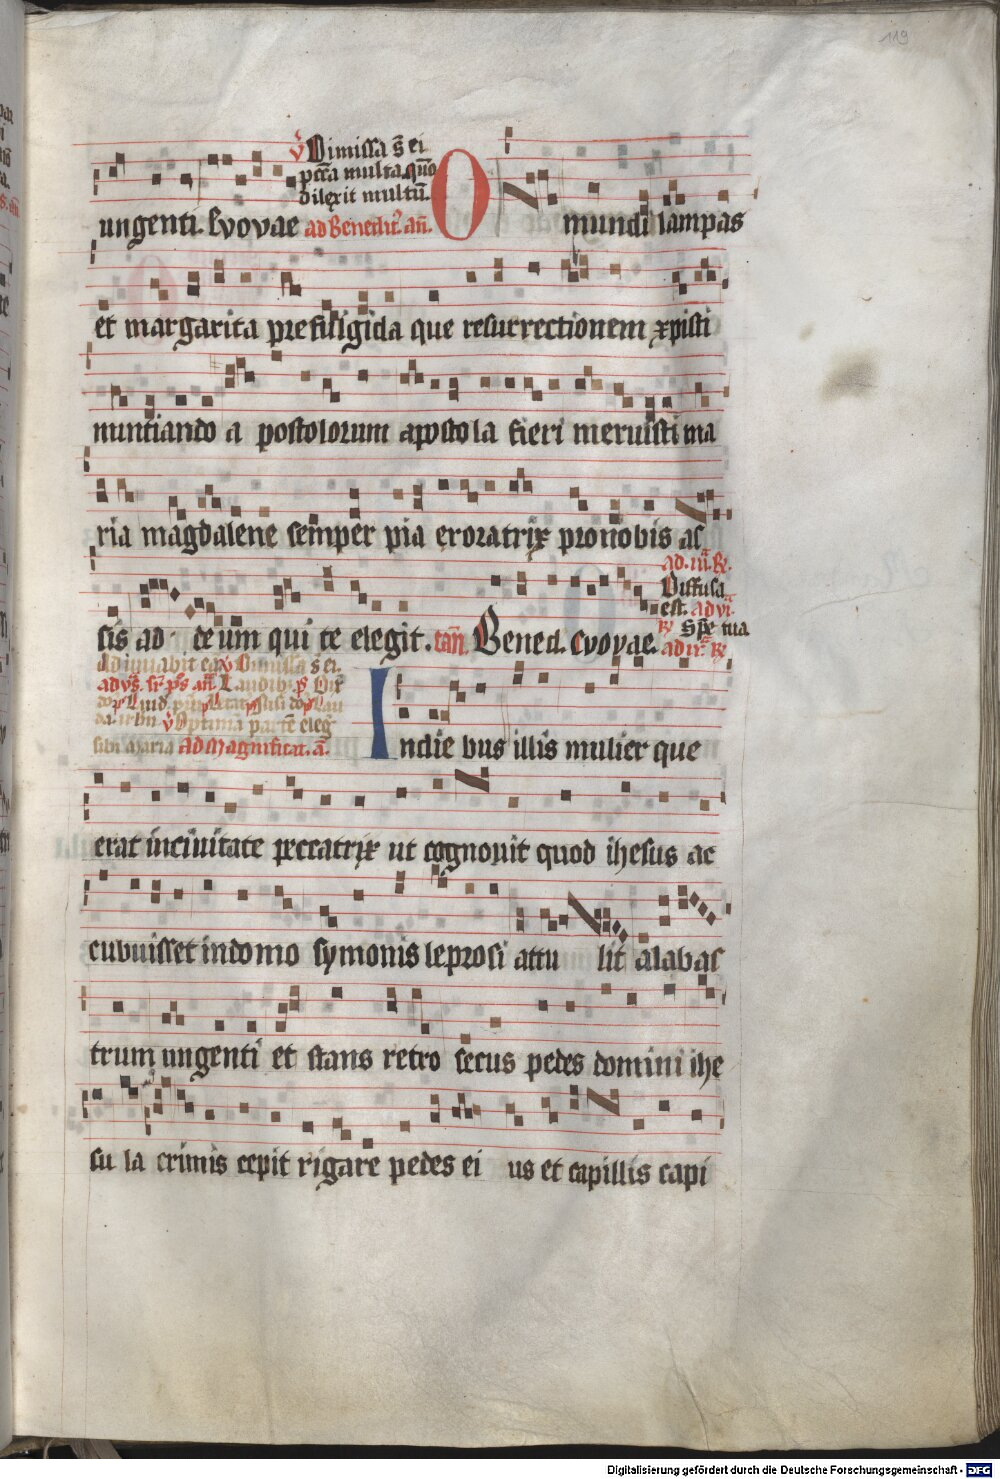 119
v Dimissa s̄ ei
pcc̄a multa. qm̄o
dilexit multū.
ungenti. Evovae ad Benedict̉ an̄. O mundi lampas
et margarita prefulgida que resurrectionem xpisti
nuntiando a postolorum apostola fieri meruisti ma
ria magdalene semper pia exoratrix pro nobis as
sis ad deum qui te elegit. Bened. Evovae.
ad .iii. R̄.
Diffusa
est. ad vi.
R̄ Spe tua
Adiuvabit ea v Dimissa s̄ ei.
Laudib
v Optima partē eleg̉
sibi maria Ad Magnificat. a̅.
In die bus illis mulier que
erat in civitate peccatrix ut cognovit quod ihesus ac
cubuisset in domo symonis leprosi attu lit alabas
trum ungenti et stans retro secus pedes domini ihe
su la crimis cepit rigare pedes ei us et capillis capi
Digitalisierung gefördert durch die Deutsche Forschungsgemeinschaft - DFG